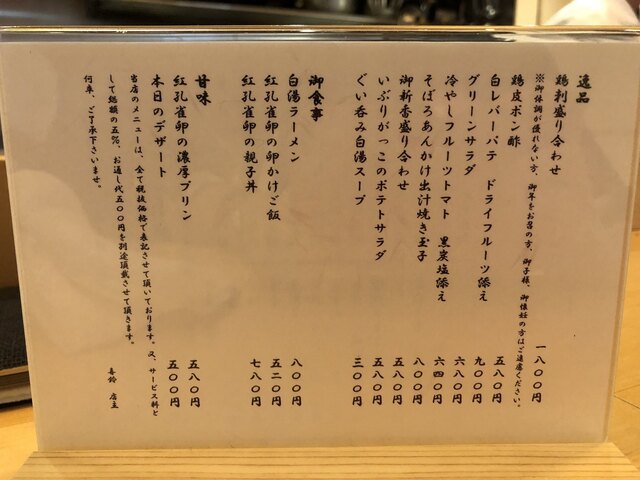 逸品
鶏刺し盛り合わせ 一八〇〇円
※御体調が優れない方、御年をお召の方、御子様、御懐妊の方はご遠慮ください。
鶏皮ポン酢 五八〇円
白レバーパテ ドライフルーツ添え 九〇〇円
グリーンサラダ 六八〇円
冷やしフルーツトマト 黒炭塩添え 六四〇円
そぼろあんかけ出汁焼き玉子 八〇〇円
御新香盛り合わせ 五八〇円
いぶりがっこのポテトサラダ 五八〇円
ぐい呑み白湯スープ 三〇〇円
御食事
白湯ラーメン 八〇〇円
紅孔雀卵の卵かけご飯 五二〇円
紅孔雀卵の親子丼 七八〇円
甘味
紅孔雀卵の濃厚プリン 五八〇円
本日のデザート 五〇〇円
当店のメニューは、全て税抜価格で表記させて頂いております。又、サービス料と
して総額の五%、お通し代五〇〇円を別途頂戴させて頂きます。
何卒、ご了承下さいませ。
喜鈴 店主